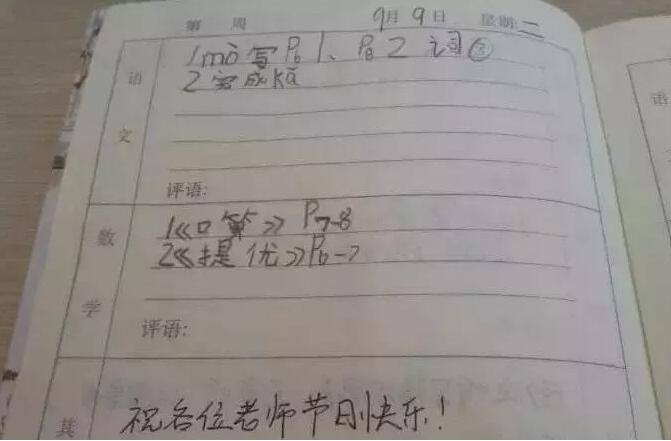 第 周 9月9日 星期:二
语文
1mò写P61、P82词②
2完成kǎ
评语:
数学
1《口算》P7-8
2《提优》P6-7
评语:
其
祝各位老师节日快乐!